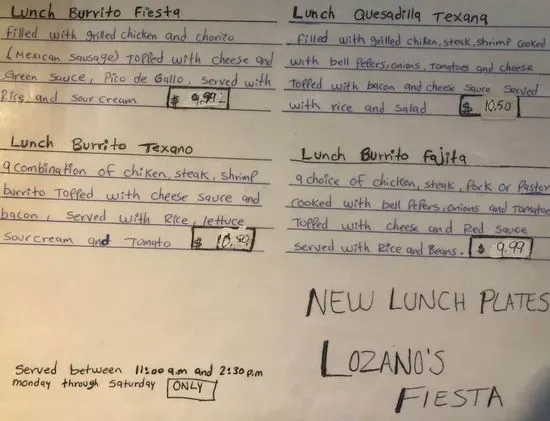 Lunch Burrito Fiesta
filled with grilled chicken and chorizo
(Mexican sausage) Topped with cheese and
Green sauce, Pico de Gallo, served with
Rice and sour cream $ 9.99
Lunch Quesadilla Texana
filled with grilled chiken, steak, shrimp cooked
with bell Pepers, onions, Tomatoes and cheese
Topped with bacon and cheese sauce served
with rice and salad $ 10.50
Lunch Burrito Texano
a combination of chiken, steak, shrimp
burrito Topped with cheese sauce and
bacon, served with Rice, lettuce
sourcream and Tomato $ 10.50
Lunch Burrito Fajita
a choice of chicken, steak, Pork or Pastor
cooked with bell Pepers, onions and Tomatoe
Topped with cheese and Red sauce
served with Rice and Beans. $ 9.99
NEW LUNCH PLATES
LOZANO'S
FIESTA
Served between 11:00 a.m and 2:30 p.m
monday through Saturday ONLY